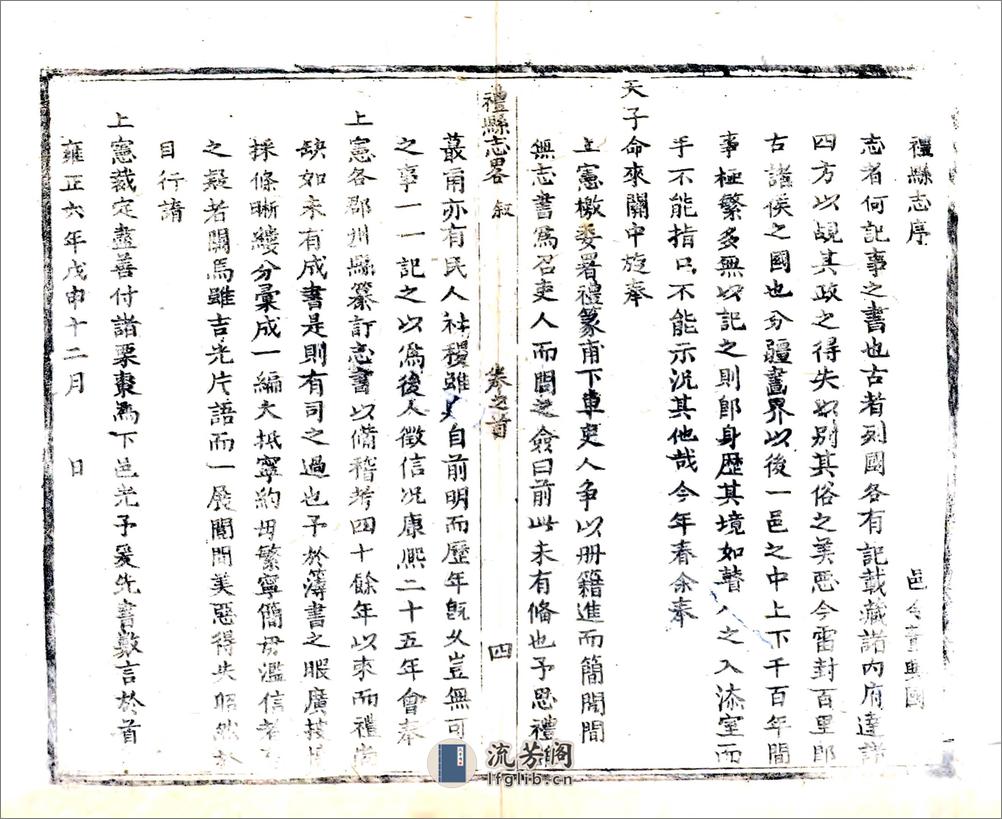 禮縣志序
邑令
志者何記事之書也古者列國各有記載藏諸內府達諸
四方以覘其政之得失以別其俗之美惡今雷封百里即
古諸侯之國也分疆畫界以後一邑之中上下千百年間
事極繁多無以記之則即身歷其境如瞽人之入漆室而
手不能指口不能示況其他哉今年春余奉
天子命來關中旋奉
上憲檄委署禮篆甫下車吏人爭以册籍進而簡閱間
無志書焉召吏人而問之僉曰前此未有脩也予思禮
禮縣志畧
敘
卷之首
四
蕞甭亦有民人社稷雖自前明而歷年旣久豈無可
之事一一記之以爲後人徵信况康熙二十五年曾奉
上憲各郡州縣纂訂志書以備稽考四十餘年以來而禮尚
缺如未有成書是則有司之過也予於簿書之暇廣
採條晰縷分彙成一編大抵寧約毋繁寧簡毋濫信者
之疑者闕焉雖吉光片語而一展閱間美惡得失昭然於
目行請
上憲裁定盡善付諸栗棗爲下邑光予爰先書數言於首
雍正六年戊申十二月　日
流芳閣
lfglib.cn